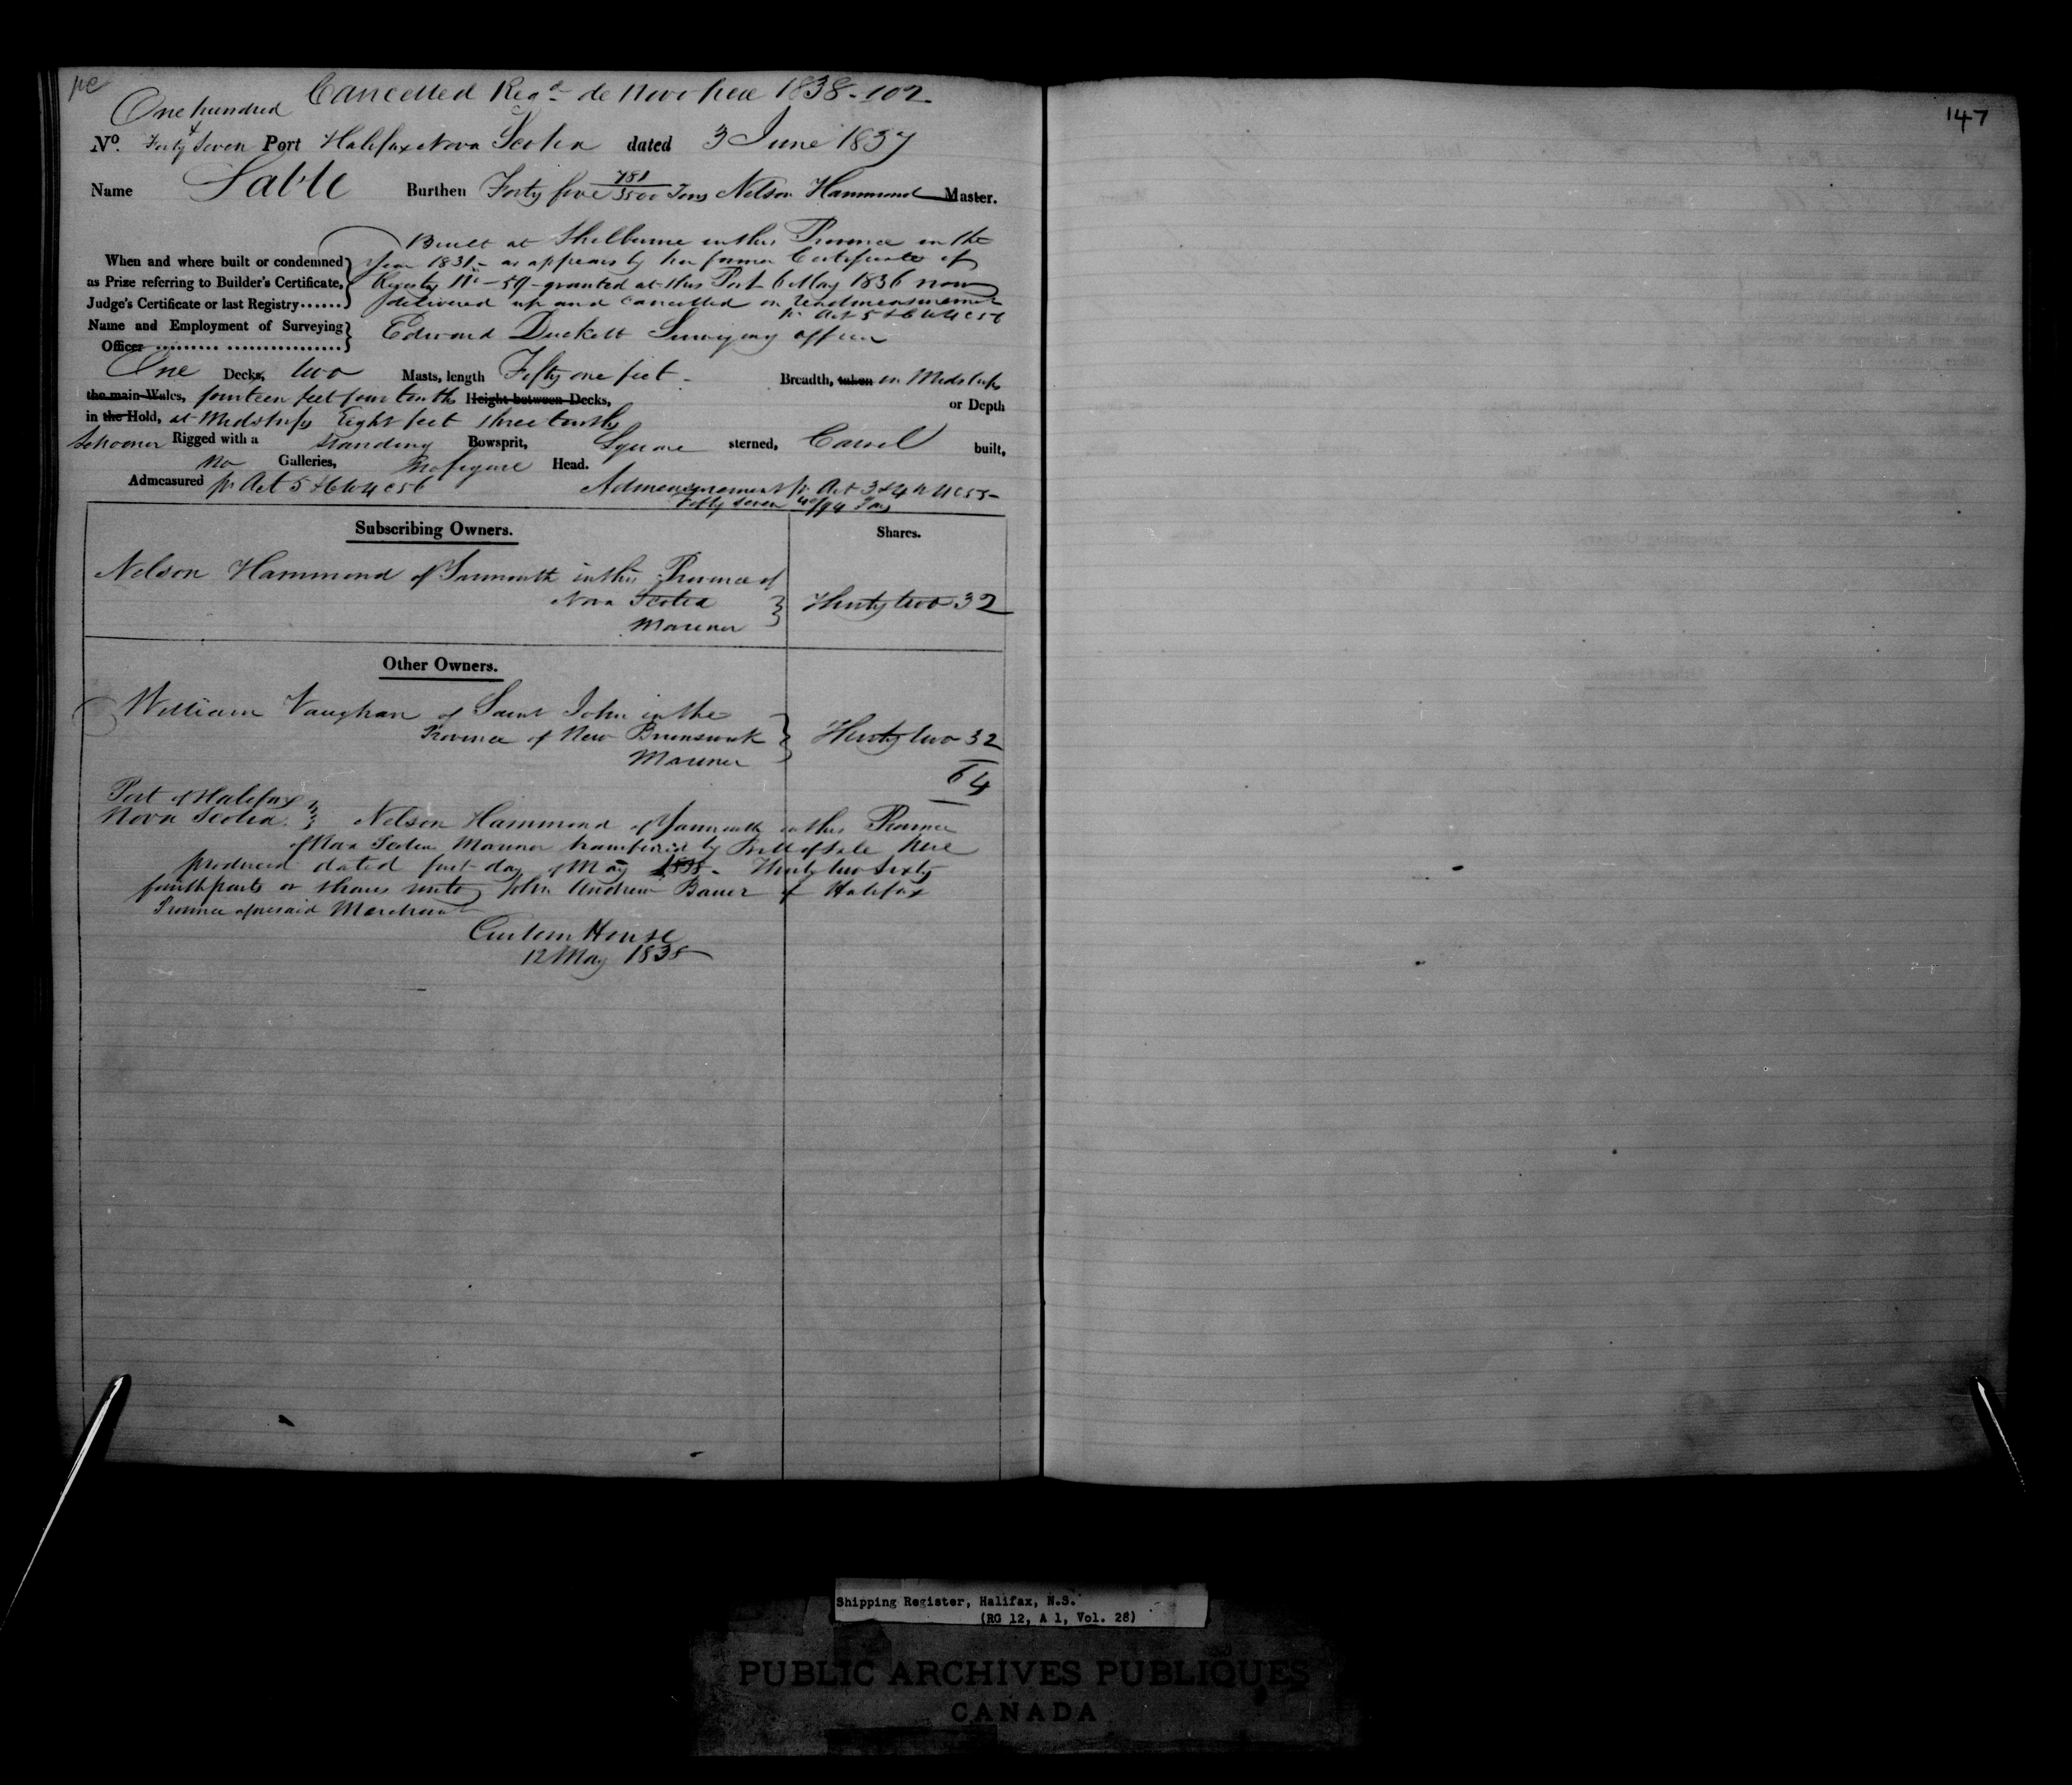 Cancelled Regd de Novo here 1838-102
147
One hundred
No. Forty & Seven Port Halifax Nova Scotia dated 3 June 1837
Name Sable Burthen Forty five 781/3500 Tons Nelson Hammond Master.
Built at Shelburne in this Province in the
When and where built or condemned Year 1831 - as appears by her former Certificate of
as Prize referring to Builder's Certificate, Registry No - 59 - granted at this Port 6 May 1836 now
Judge's Certificate or last Registry...... delivered up and cancelled on readmeasurement
pr Act 5 & 6 W 4 c 56
Name and Employment of Surveying
Officer Edward Duckett Surveying officer
One Decks, two Masts, length Fifty one feet - Breadth, taken in Midships
the main Wales, fourteen feet four tenths Height between Decks, or Depth
in the Hold, at Midships Eight feet three tenths
Schooner Rigged with a standing Bowsprit, Square sterned, Carvel built,
no Galleries, no figure Head.
Admeasured pr Act 5 & 6 W 4 c 56 Admeasurement pr Act 3 & 4 W 4 c 55 -
Fifty seven 40/94 Tons
Subscribing Owners. Shares.
Nelson Hammond of Yarmouth in this Province of
Nova Scotia Thirty two 32
Mariner
Other Owners.
William Vaughan of Saint John in the
Province of New Brunswick Thirty two 32
Mariner
64
Port of Halifax
Nova Scotia. Nelson Hammond of Yarmouth in this Province
of Nova Scotia Mariner transferred by Bill of Sale here
produced dated first day of May 1838 - Thirty two Sixty
fourth parts or shares unto John Andrew Bauer of Halifax
Province aforesaid Merchant
Custom House
12 May 1838
Shipping Register, Halifax, N.S.
(RG 12, A 1, Vol. 28)
PUBLIC ARCHIVES PUBLIQUES
CANADA